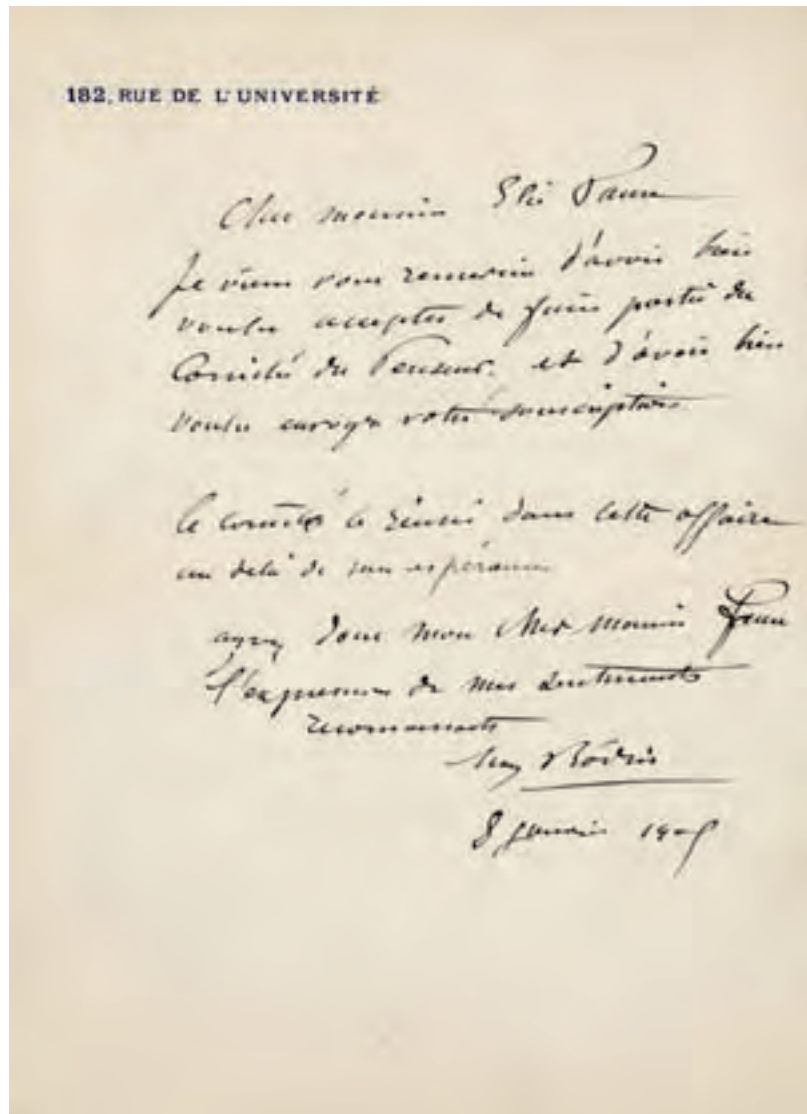 182, RUE DE L'UNIVERSITÉ
Cher monsieur Elie Faure
Je viens vous remercier d'avoir bien
voulu accepter de faire partie du
Comité du Penseur. et d'avoir bien
voulu envoyer votre souscription
le comité a réussi dans cette affaire
au delà de son espérance
ayez donc mon cher monsieur Faure
l'expression de mes sentiments
reconnaissants
Rodin
8 janvier 190